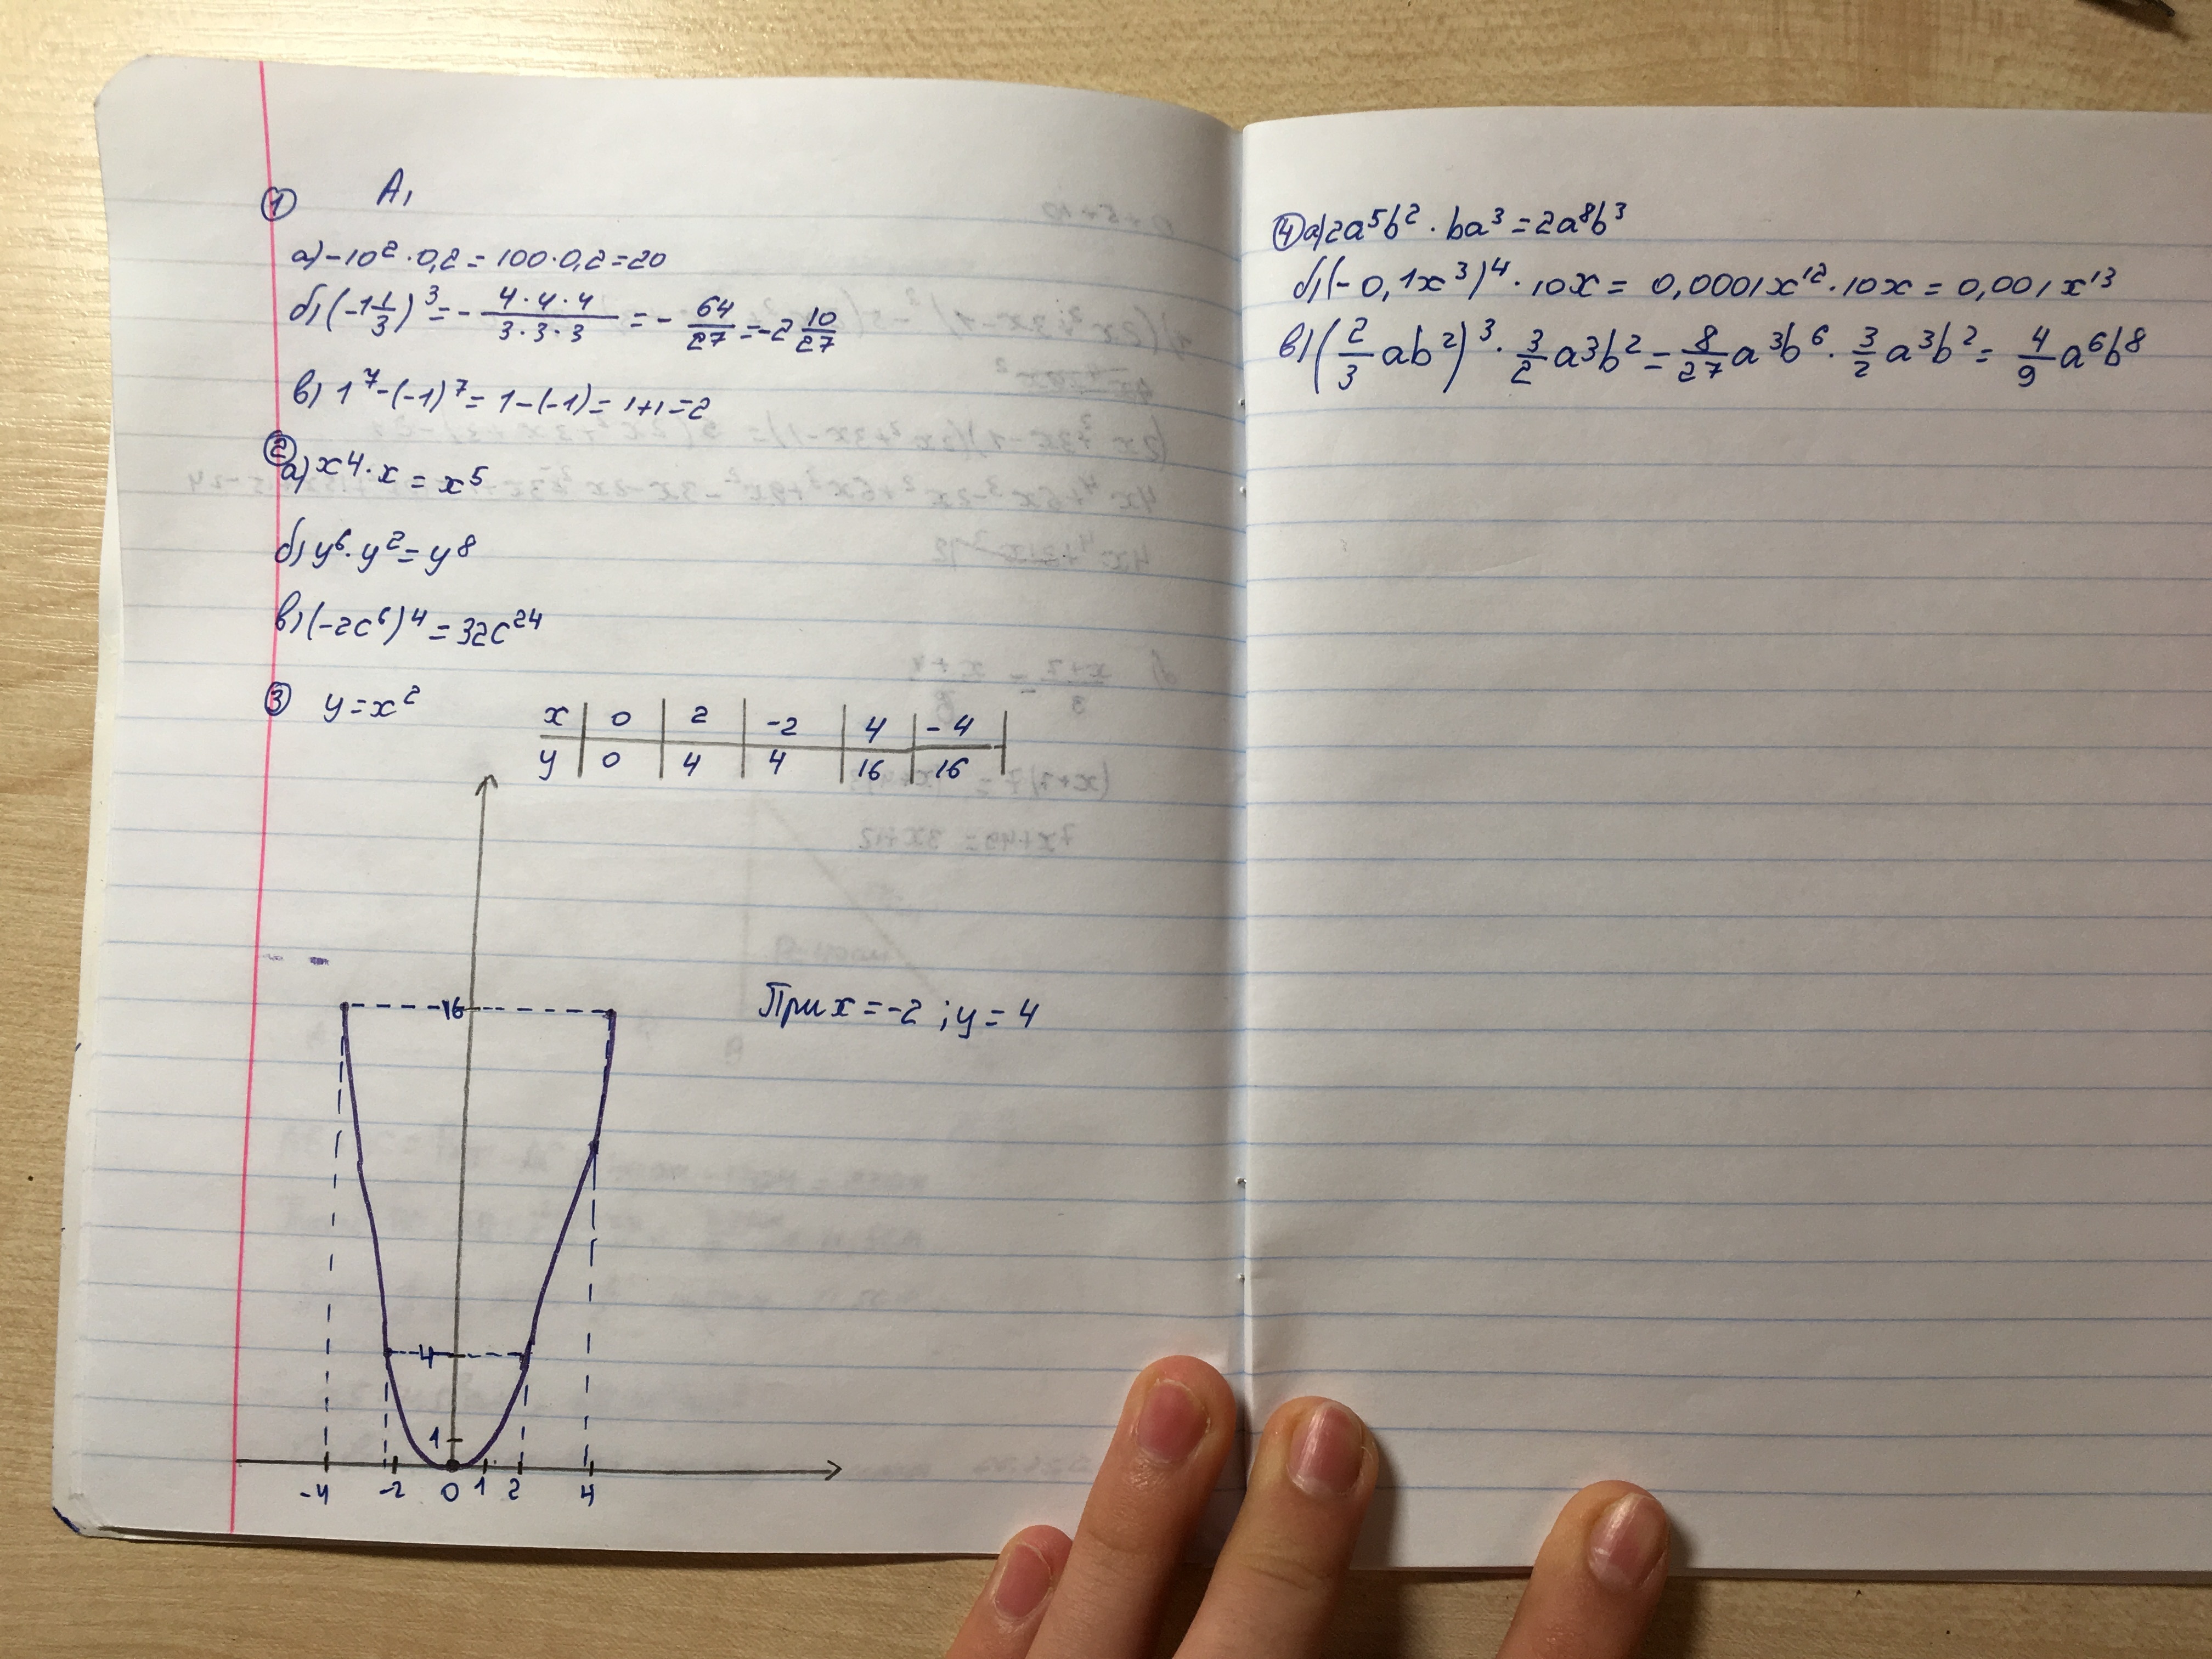 ① А₁
а) -10² · 0,2 = 100 · 0,2 = 20
б) (-1 1/3)³ = - 4·4·4/3·3·3 = - 64/27 = -2 10/27
в) 1⁷ - (-1)⁷ = 1 - (-1) = 1+1 = 2
②
а) x⁴ · x = x⁵
б) y⁶ · y² = y⁸
в) (-2c⁶)⁴ = 32c²⁴
③ y = x²
x | 0 | 2 | -2 | 4 | -4
y | 0 | 4 | 4 | 16 | 16
16
При x = -2 ; y = 4
4
1
-4 -2 0 1 2 4
④ а) 2a⁵b² · ba³ = 2a⁸b³
б) (-0,1x³)⁴ · 10x = 0,0001x¹² · 10x = 0,001x¹³
в) (2/3 ab²)³ · 3/2 a³b² = 8/27 a³b⁶ · 3/2 a³b² = 4/9 a⁶b⁸